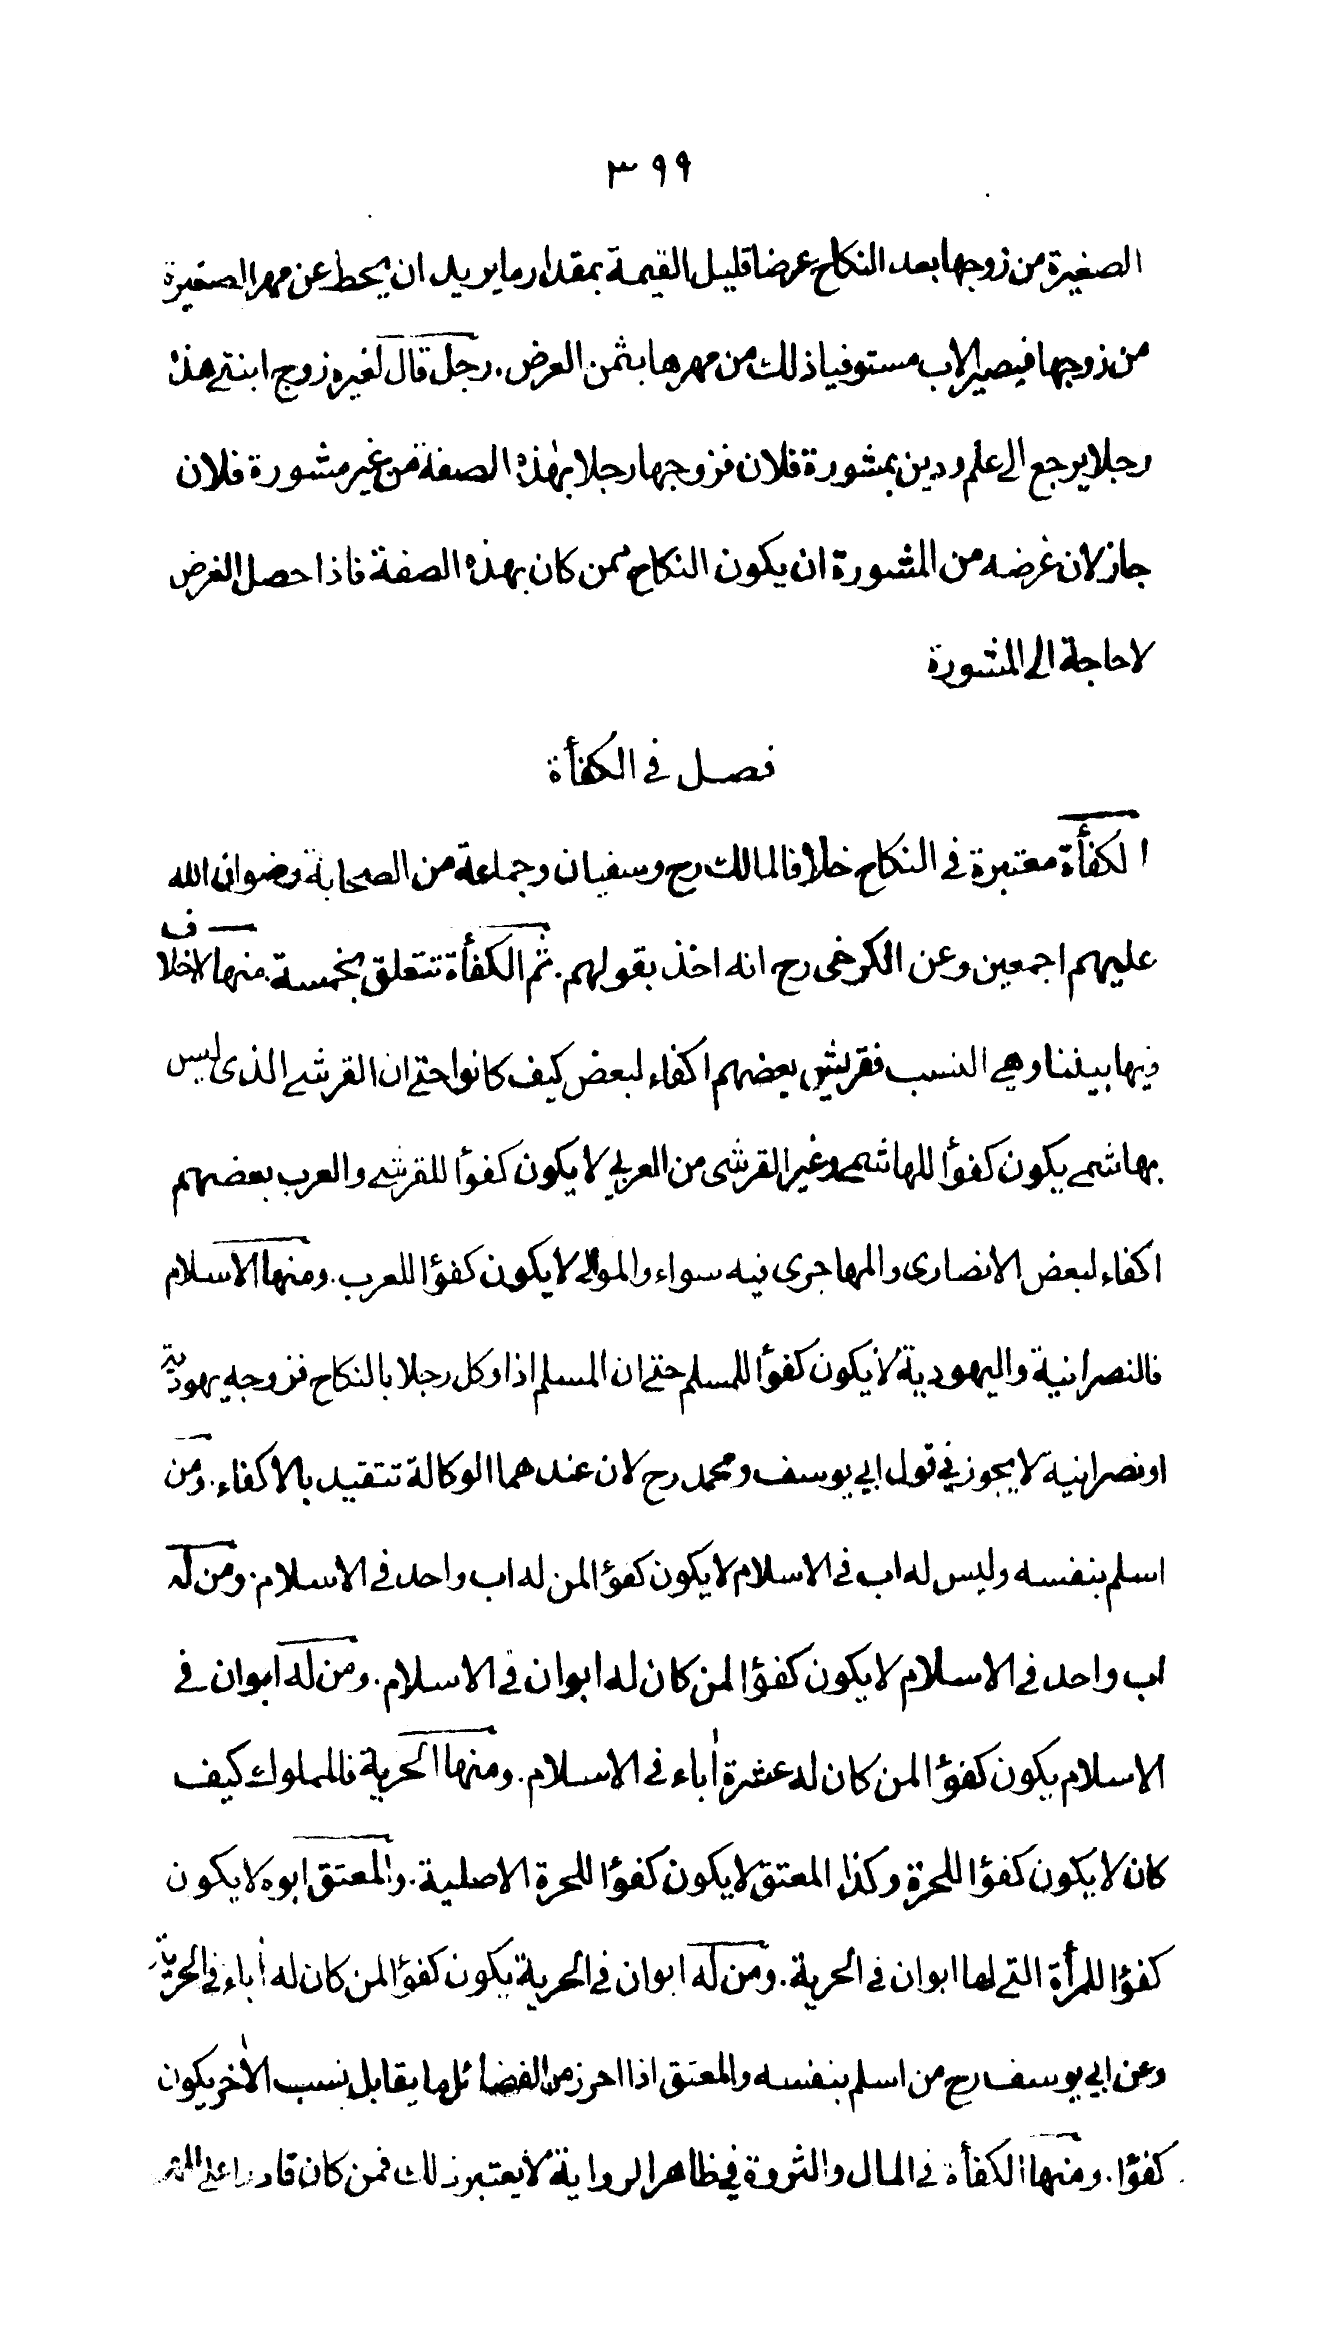 ٣٩٩
الصغيرة من زوجها بعد النكاح عرضا قليل القيمة بمقدار ما يريد ان يحط عن مهر الصغيرة
من زوجها فيصير الاب مستوفيا ذلك من مهرها بثمن العرض. رجل قال لغيره زوج ابنتے هذه
رجلا يرجع الى علم ودين بمشورة فلان فزوجها رجلا بهذه الصفة من غير مشورة فلان
جاز لان غرضه من المشورة ان يكون النكاح ممن كان بهذه الصفة فاذا حصل الغرض
لا حاجة الى المشورة
فصل في الكفأة
الكفأة معتبرة في النكاح خلافا لمالك رح وسفيان وجماعة من الصحابة رضوان الله
عليهم اجمعين وعن الكرخى رح انه اخذ بقولهم. ثم الكفأة تتعلق بخمسة. منها لا خلاف
فيها بيننا وهي النسب فقريش بعضهم اكفاء لبعض كيف كانوا حتے ان القرشے الذى ليس
بهاشمے يكون كفوًا للهاشمے وغير القرشى من العربي لا يكون كفوًا للقرشے والعرب بعضهم
اكفاء لبعض الانصارى والمهاجرى فيه سواء والموالے لا يكون كفوًا للعرب. ومنها الاسلام
فالنصرانية واليهودية لا يكون كفوًا للمسلم حتے ان المسلم اذا وكل رجلا بالنكاح فزوجه يهودية
او نصرانية لا يجوز في قول ابي يوسف ومحمد رح لان عندهما الوكالة تتقيد بالاكفاء. ومن
اسلم بنفسه وليس له اب في الاسلام لا يكون كفؤا لمن له اب واحد في الاسلام. ومن له
اب واحد في الاسلام لا يكون كفؤا لمن كان له ابوان في الاسلام. ومن له ابوان في
الاسلام يكون كفؤا لمن كان له عشرة اٰباء في الاسلام. ومنها الحرية فالمملوك كيف
كان لا يكون كفؤا للحرة وكذا المعتق لا يكون كفؤا للحرة الاصلية. والمعتق ابوه لا يكون
كفؤا للمرأة التے لها ابوان في الحرية. ومن له ابوان في الحرية يكون كفؤا لمن كان له اٰباء في الحرية
وعن ابي يوسف رح من اسلم بنفسه والمعتق اذا احرز من الفضائل ما يقابل نسب الاٰخر يكون
كفؤا. ومنها الكفأة في المال والثروة في ظاهر الرواية لا يعتبر ذلك فمن كان قادرا على المهر